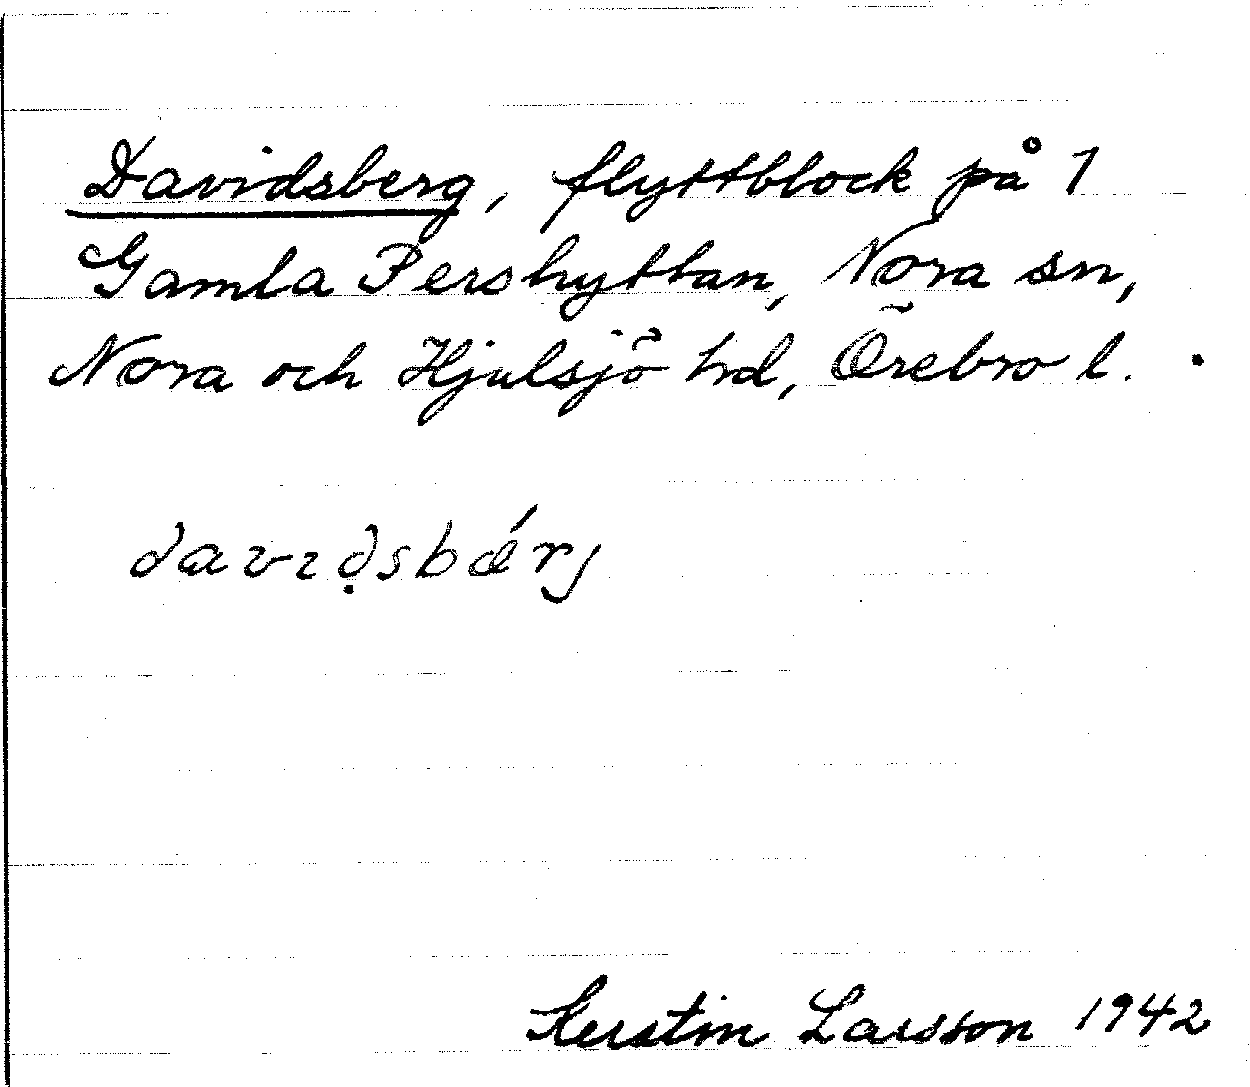 Davidsberg, flyttblock på 1
Gamla Pershyttan, Nora sn,
Nora och Hjulsjö hd, Örebro l.
davıḍsbǽrj
Kerstin Larsson 1942